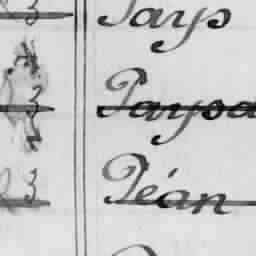 3 Pays
3 Paysa
3 Péan